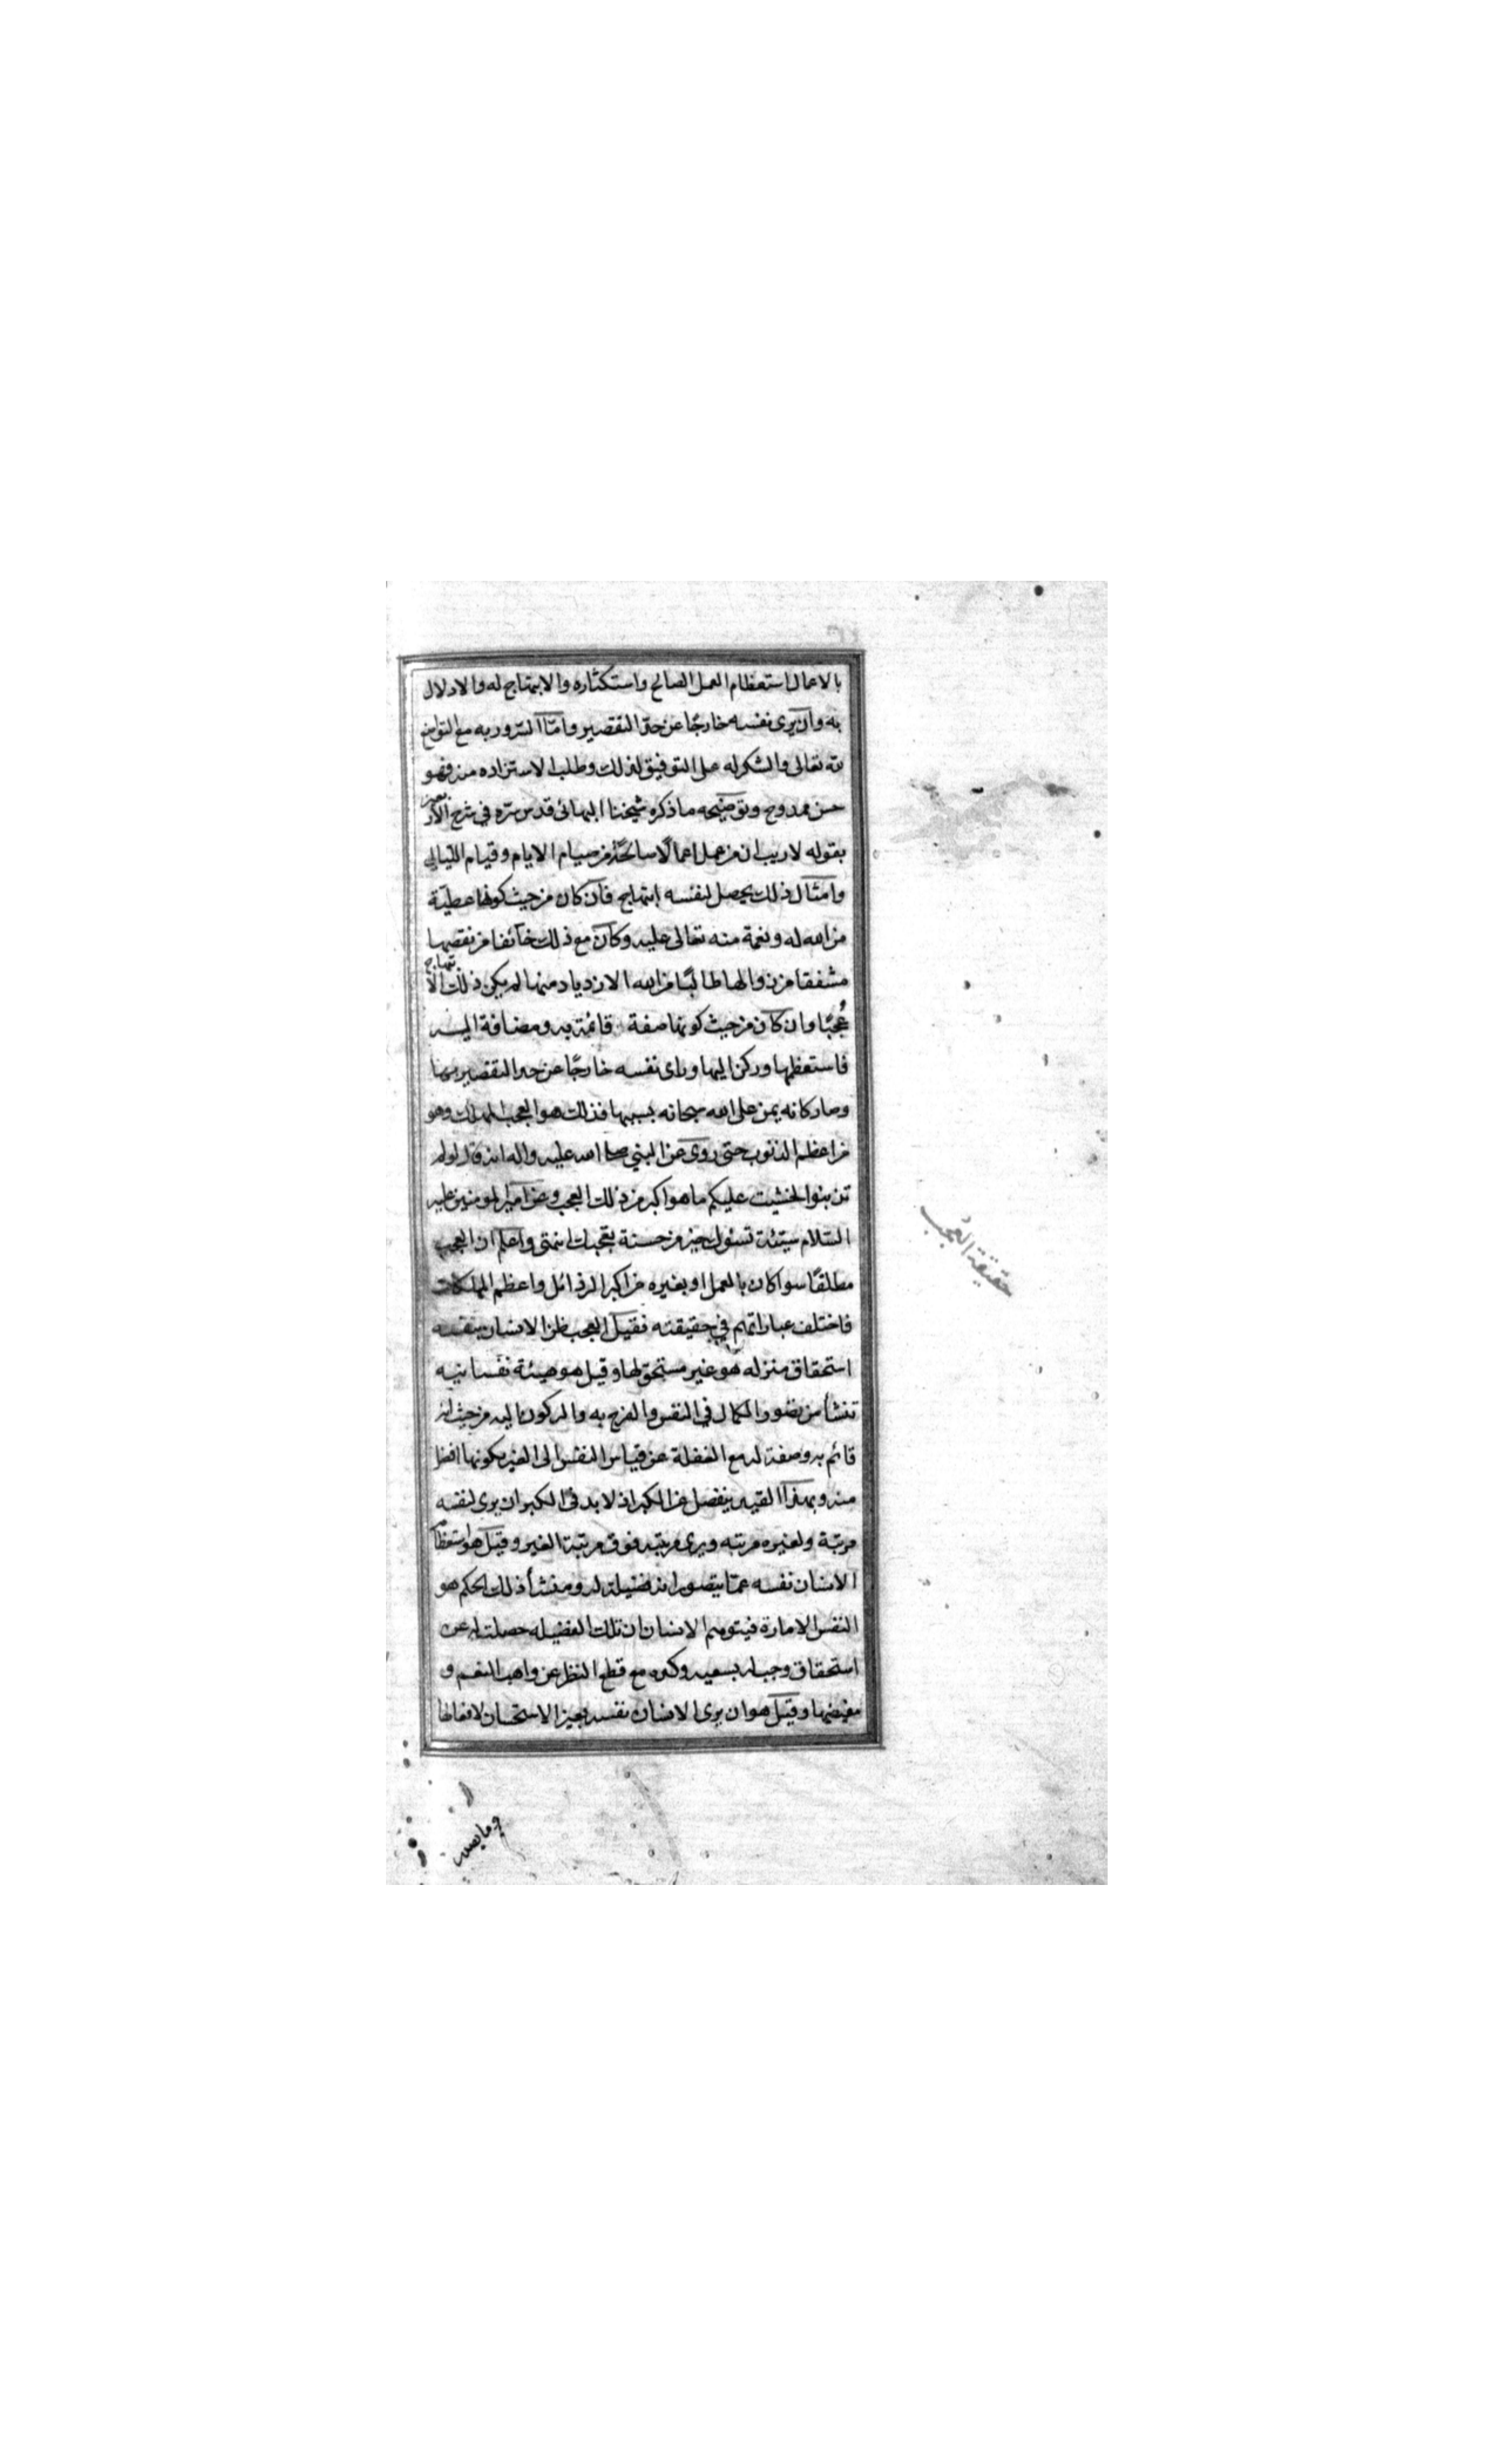 بالاعمال استعظام العمل الصالح واستكثاره والابتهاج له والادلال
به وان يرى نفسه خارجًا عن حد التقصير وامّا السرور به مع التواضع
لله تعالى والشكر له على التوفيق لذلك وطلب الاستزاده منه فهو
حسن ممدوح وتوضيحه ما ذكره شيخنا البهائى قدس سرّه في شرح الاربعين
بقوله لا ريب ان من عمل اعمالًا صالحة من صيام الايام وقيام الليالي
وامثال ذلك يحصل لنفسه ابتهاج فان كان من حيث كونها عطيّة
من الله له ونعمة منه تعالى عليه وكان مع ذلك خائفا من نقصها
مشفقا من زوالها طالبًا من الله الازدياد منها لم يكن ذلك الابتهاج
عُجبًا وان كان من حيث كونها صفة قائمة به ومضافة اليه
فاستعظمها وركن اليها وراى نفسه خارجًا عن حد التقصير بها
وصار كانه يمن على الله سبحانه بسببها فذلك هو العجب المهلك وهو
من اعظم الذنوب حتى روى عن النبي صلى الله عليه واله انه قال لو لم
تذنبوا لخشيت عليكم ما هو اكبر من ذلك العجب وعن امير المومنين عليه
السّلام سيّئة تسوئك خير من حسنة تعجبك انتهى واعلم ان العجب
مطلقًا سوا كان بالعمل او بغيره من اكبر الرذائل واعظم المهلكات
فاختلف عباراتهم في حقيقته فقيل العجب ظن الانسان بنفسه
استحقاق منزله هو غير مستحق لها وقيل هو هيئة نفسانيه
تنشأ من تصور الكمال في النفس والفرح به والركون اليه من حيث انه
قائم به وصفة له مع الغفلة عن قياس النفس الى الغير بكونها افضل
منه وبهذا القيد ينفصل عن الكبر اذ لا بد في الكبر ان يرى لنفسه
مرتبة ولغيره مرتبه ويرى مرتبته فوق مرتبة الغير وقيل هو استعظام
الانسان نفسه عمّا يتصور انه فضيلة له ومنشأ ذلك الحكم هو
النفس الامارة فيتوهم الانسان ان تلك الفضيله حصلت له عن
استحقاق وجب له بسعيه وكده مع قطع النظر عن واهب النعم و
مفيضها وقيل هو ان يرى الانسان نفسه بعين الاستحسان لافعالها
حقيقة العُجب